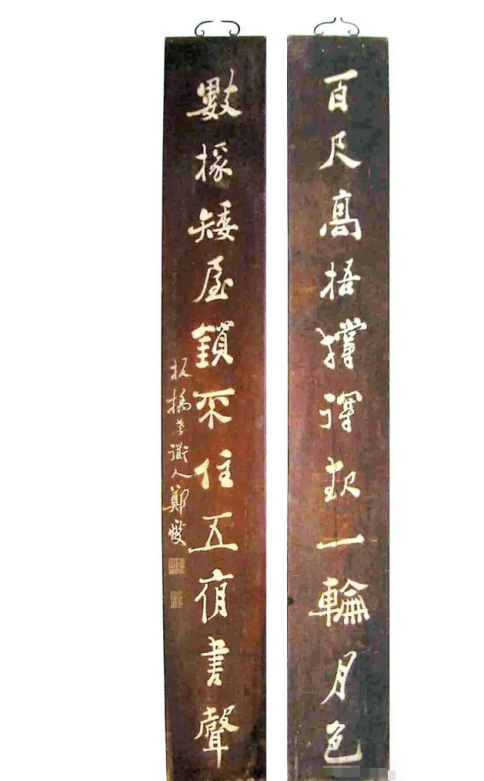 百尺高梧撐得起一輪月色
數椽矮屋鎖不住五夜書聲
板橋人鄭燮